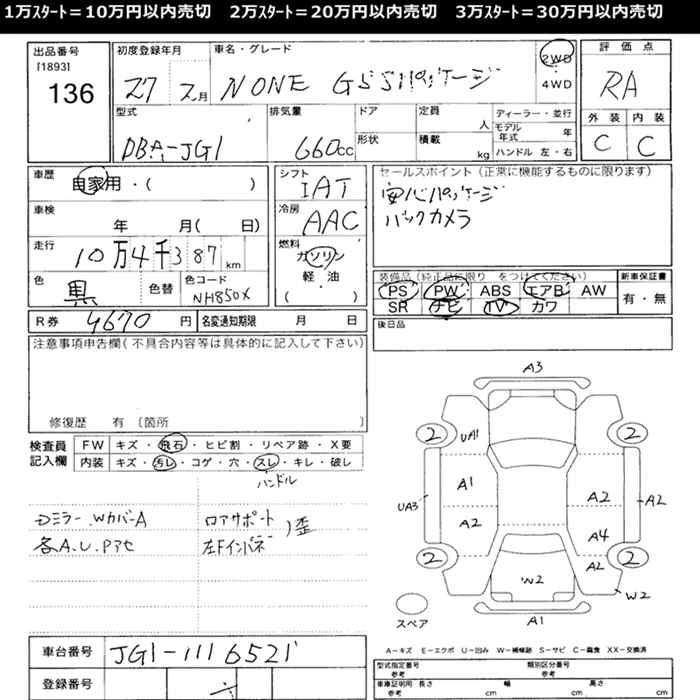 1万ｽﾀｰﾄ＝10万円以内売切　2万ｽﾀｰﾄ＝20万円以内売切　3万ｽﾀｰﾄ＝30万円以内売切
出品番号
[1893]
136
初度登録年月
27 2月
車名・グレード
NONE GSSパッケージ
2WD
・
4WD
評価点
RA
外装 内装
C C
型式
DBA-JG1
排気量
660cc
ドア
形状
定員
人
積載
kg
ディーラー・並行
モデル年式 年
ハンドル 左・右
車歴
自家用・( )
車検
年 月( 日)
走行
10万4千387km
色
黒
色替
色コード
NH850X
シフト
IAT
冷房
AAC
燃料
ガソリン
・
軽・油
( )
セールスポイント（正常に機能するものに限ります）
安心パッケージ
バックカメラ
装備品（純正品に限り をつけてください）
PS PW ABS エアB AW
SR ナビ TV カワ
新車保証書
有・無
R券 4670 円 名変通知期限 月 日
後日品
注意事項申告欄（不具合内容等は具体的に記入して下さい）
修復歴 有〔箇所
検査員記入欄
FW キズ・飛石・ヒビ割・リペア跡・X要
内装 キズ・汚レ・コゲ・穴・スレ・キレ・破レ
ハンドル
Dミラー、WカバーA
各A.U.Pアセ
ロアサポート
左Fインパネ
)歪
A3
2 2
UA1
A1
A2
UA3
A2
A2
A4
A2
2 2
W2
W2
A1
スペア
A－キズ E－エクボ U－凹み W－補修跡 S－サビ C－腐食 XX－交換済
車台番号 JG1-1116521
登録番号
型式指定番号
参考
類別区分番号
参考
車庫証明用 長さ
参考 cm
幅
cm
高さ
cm